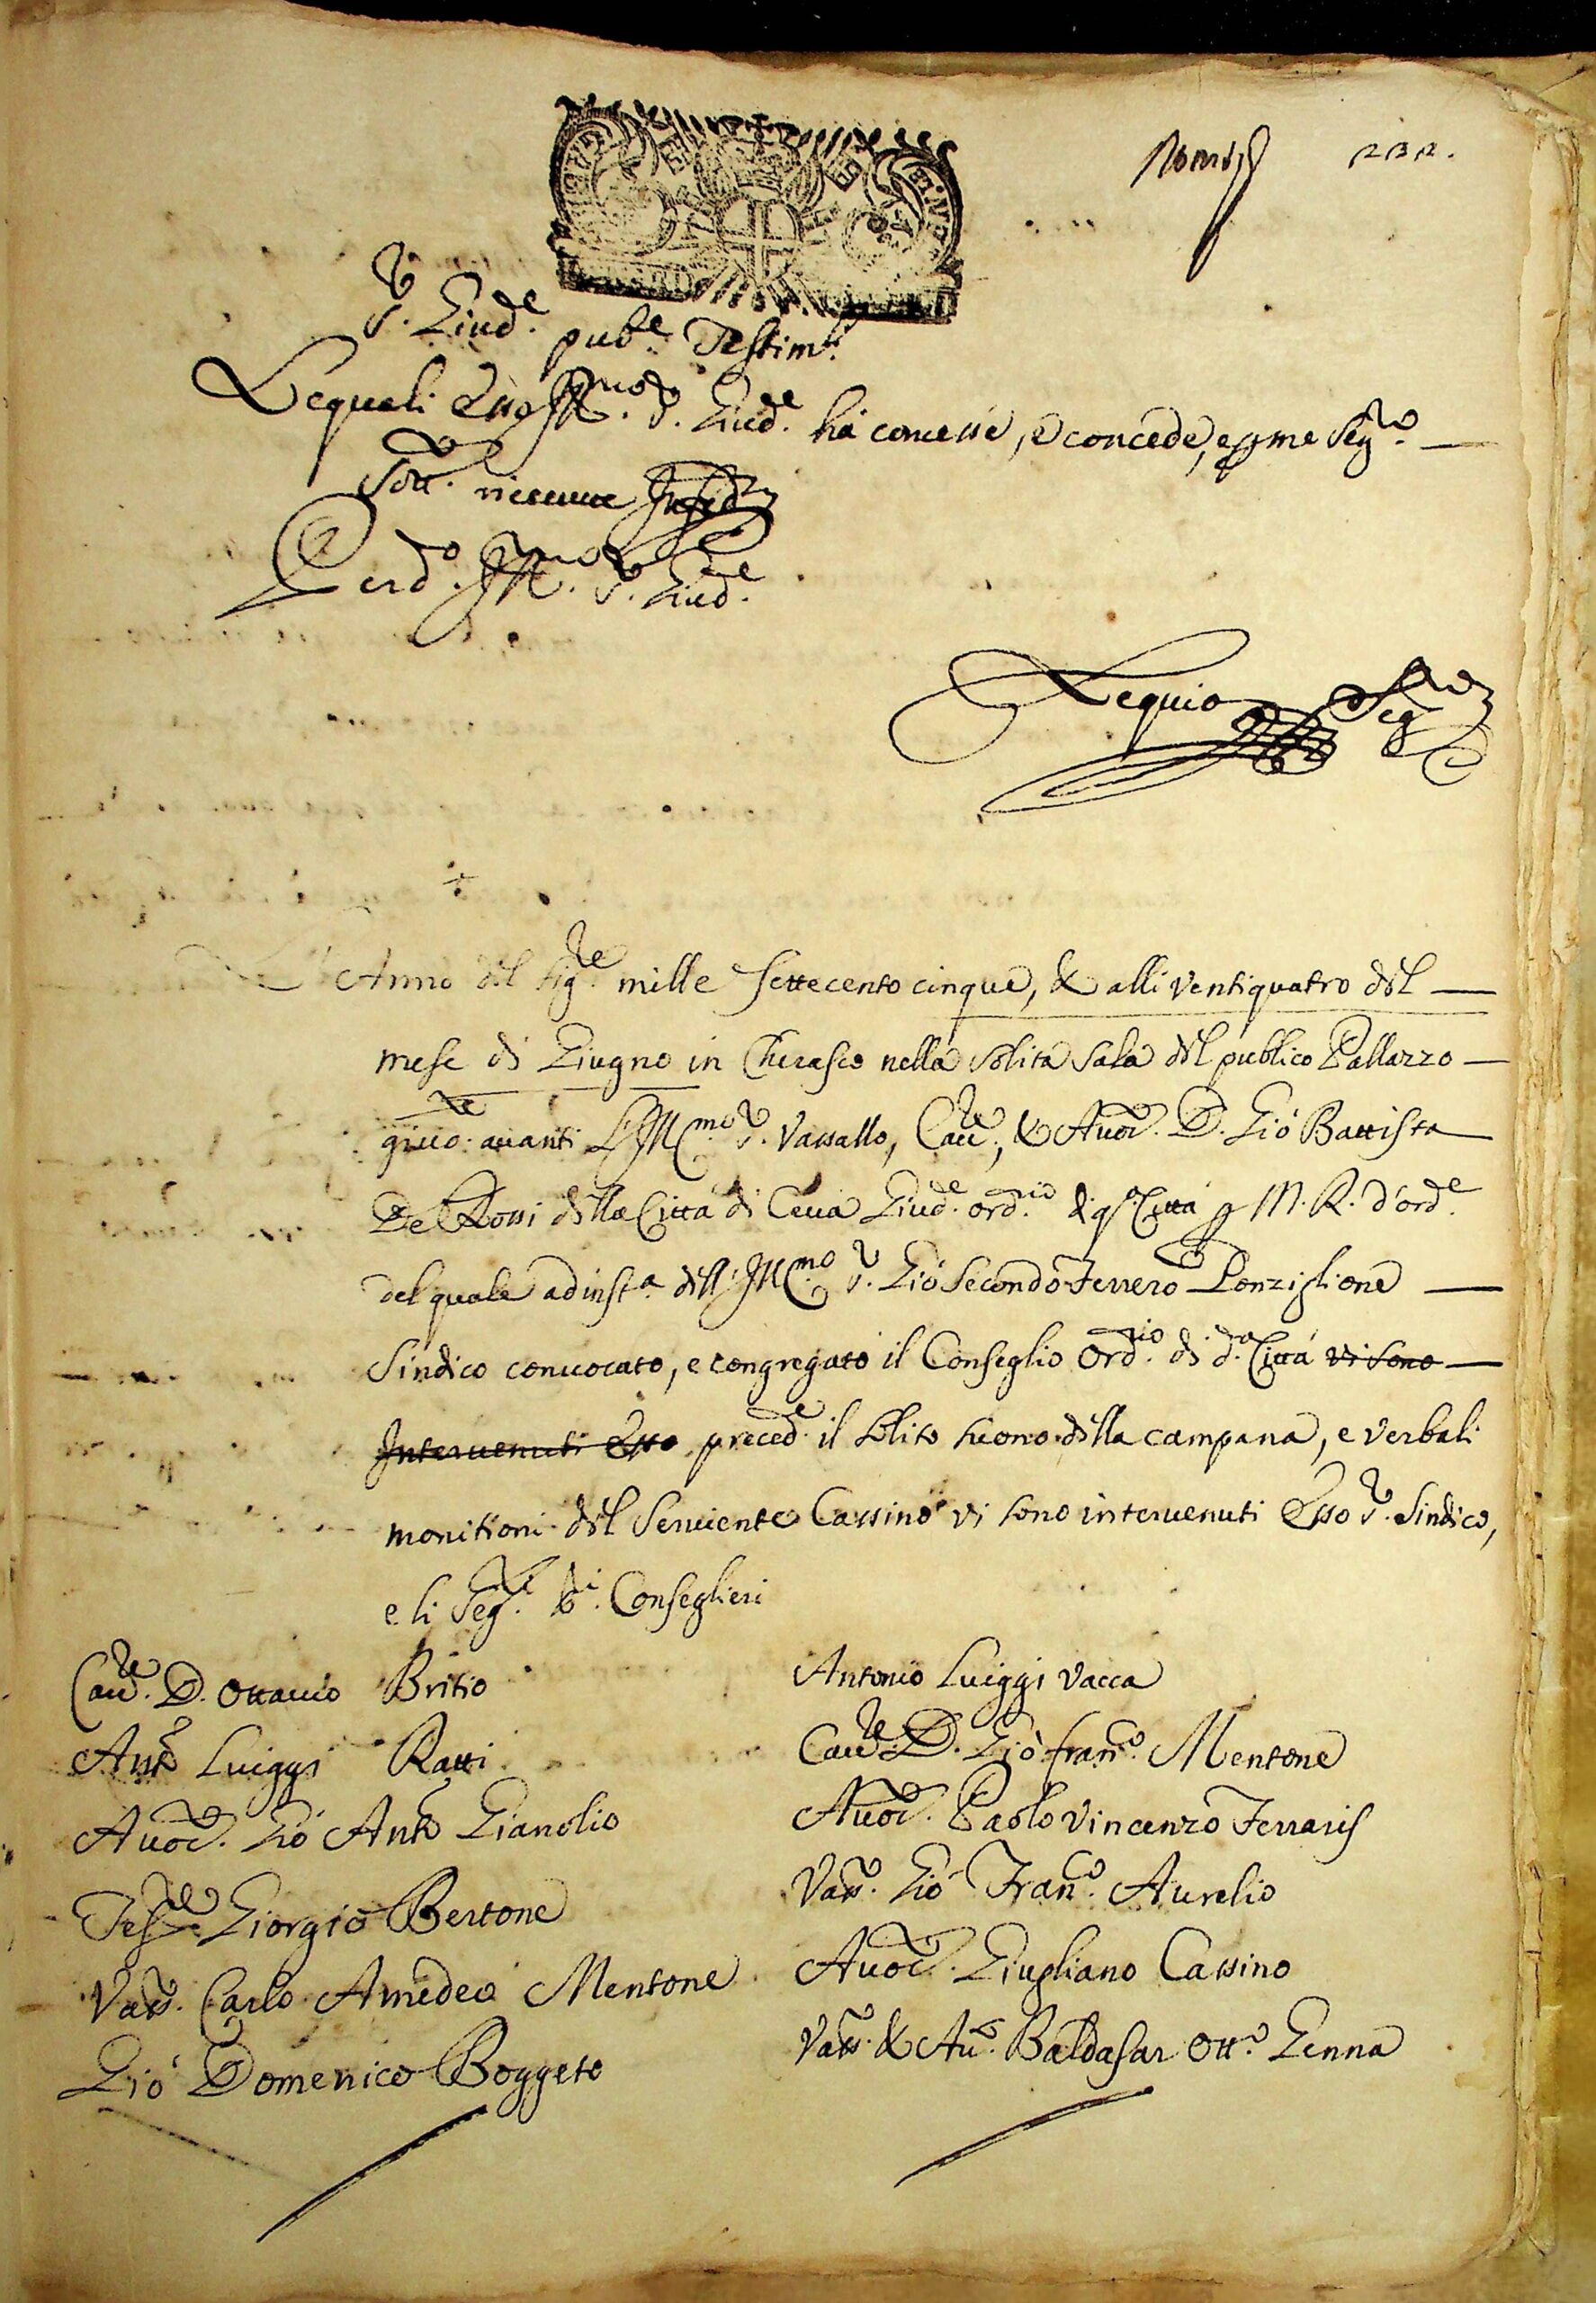 232.
S.r Giud.e pub.e Testim.li
Lequali Esso Ill.mo S.r Giud.e hà concesse, e concede, e p me Seg.ro
Sott. riceuute
P d.o Ill.mo S.r Giud.e
Lequio Seg.ro
L'Anno del Sig.re mille settecento cinque, & alli ventiquatro del
mese di Giugno in Cherasco nella solita sala del publico Pallazzo
giuco: auanti L'Ill.mo S.r Vassallo, Cau.re, & Auoc.o D. Gió Battista
De Rossi della Città di Ceua Giud.e ord.rio di q.sta Città p M. R. d'ord.e
del quale ad inst.a dell'Ill.mo S.r Gió Secondo Ferrero Ponziglione
Sindico conuocato, e congregato il Conseglio Ord.rio di d.a Città vi sono
Interuenuti Esso preced.e il solito suono della campana, e verbali
monitioni del Seruiente Cassino vi sono interuenuti Esso S.r Sindico,
e li Seg.ti SS.ri Conseglieri
Cau.re D. Ottauio Britio
Ant.o Luiggi Ratti
Auoc.o Gió Ant.o Gianolio
Tes.re Giorgio Bertone
Vass.o Carlo Amedeo Mentone
Gió Domenico Boggeto
Antonio Luiggi Vacca
Cau.re D. Gió Fran.co Mentone
Auoc.o Paolo Vincenzo Ferraris
Vass.o Gió Fran.co Aurelio
Auoc.o Giugliano Cassino
Vass.o & Au.o Baldasar Ott.o Genna